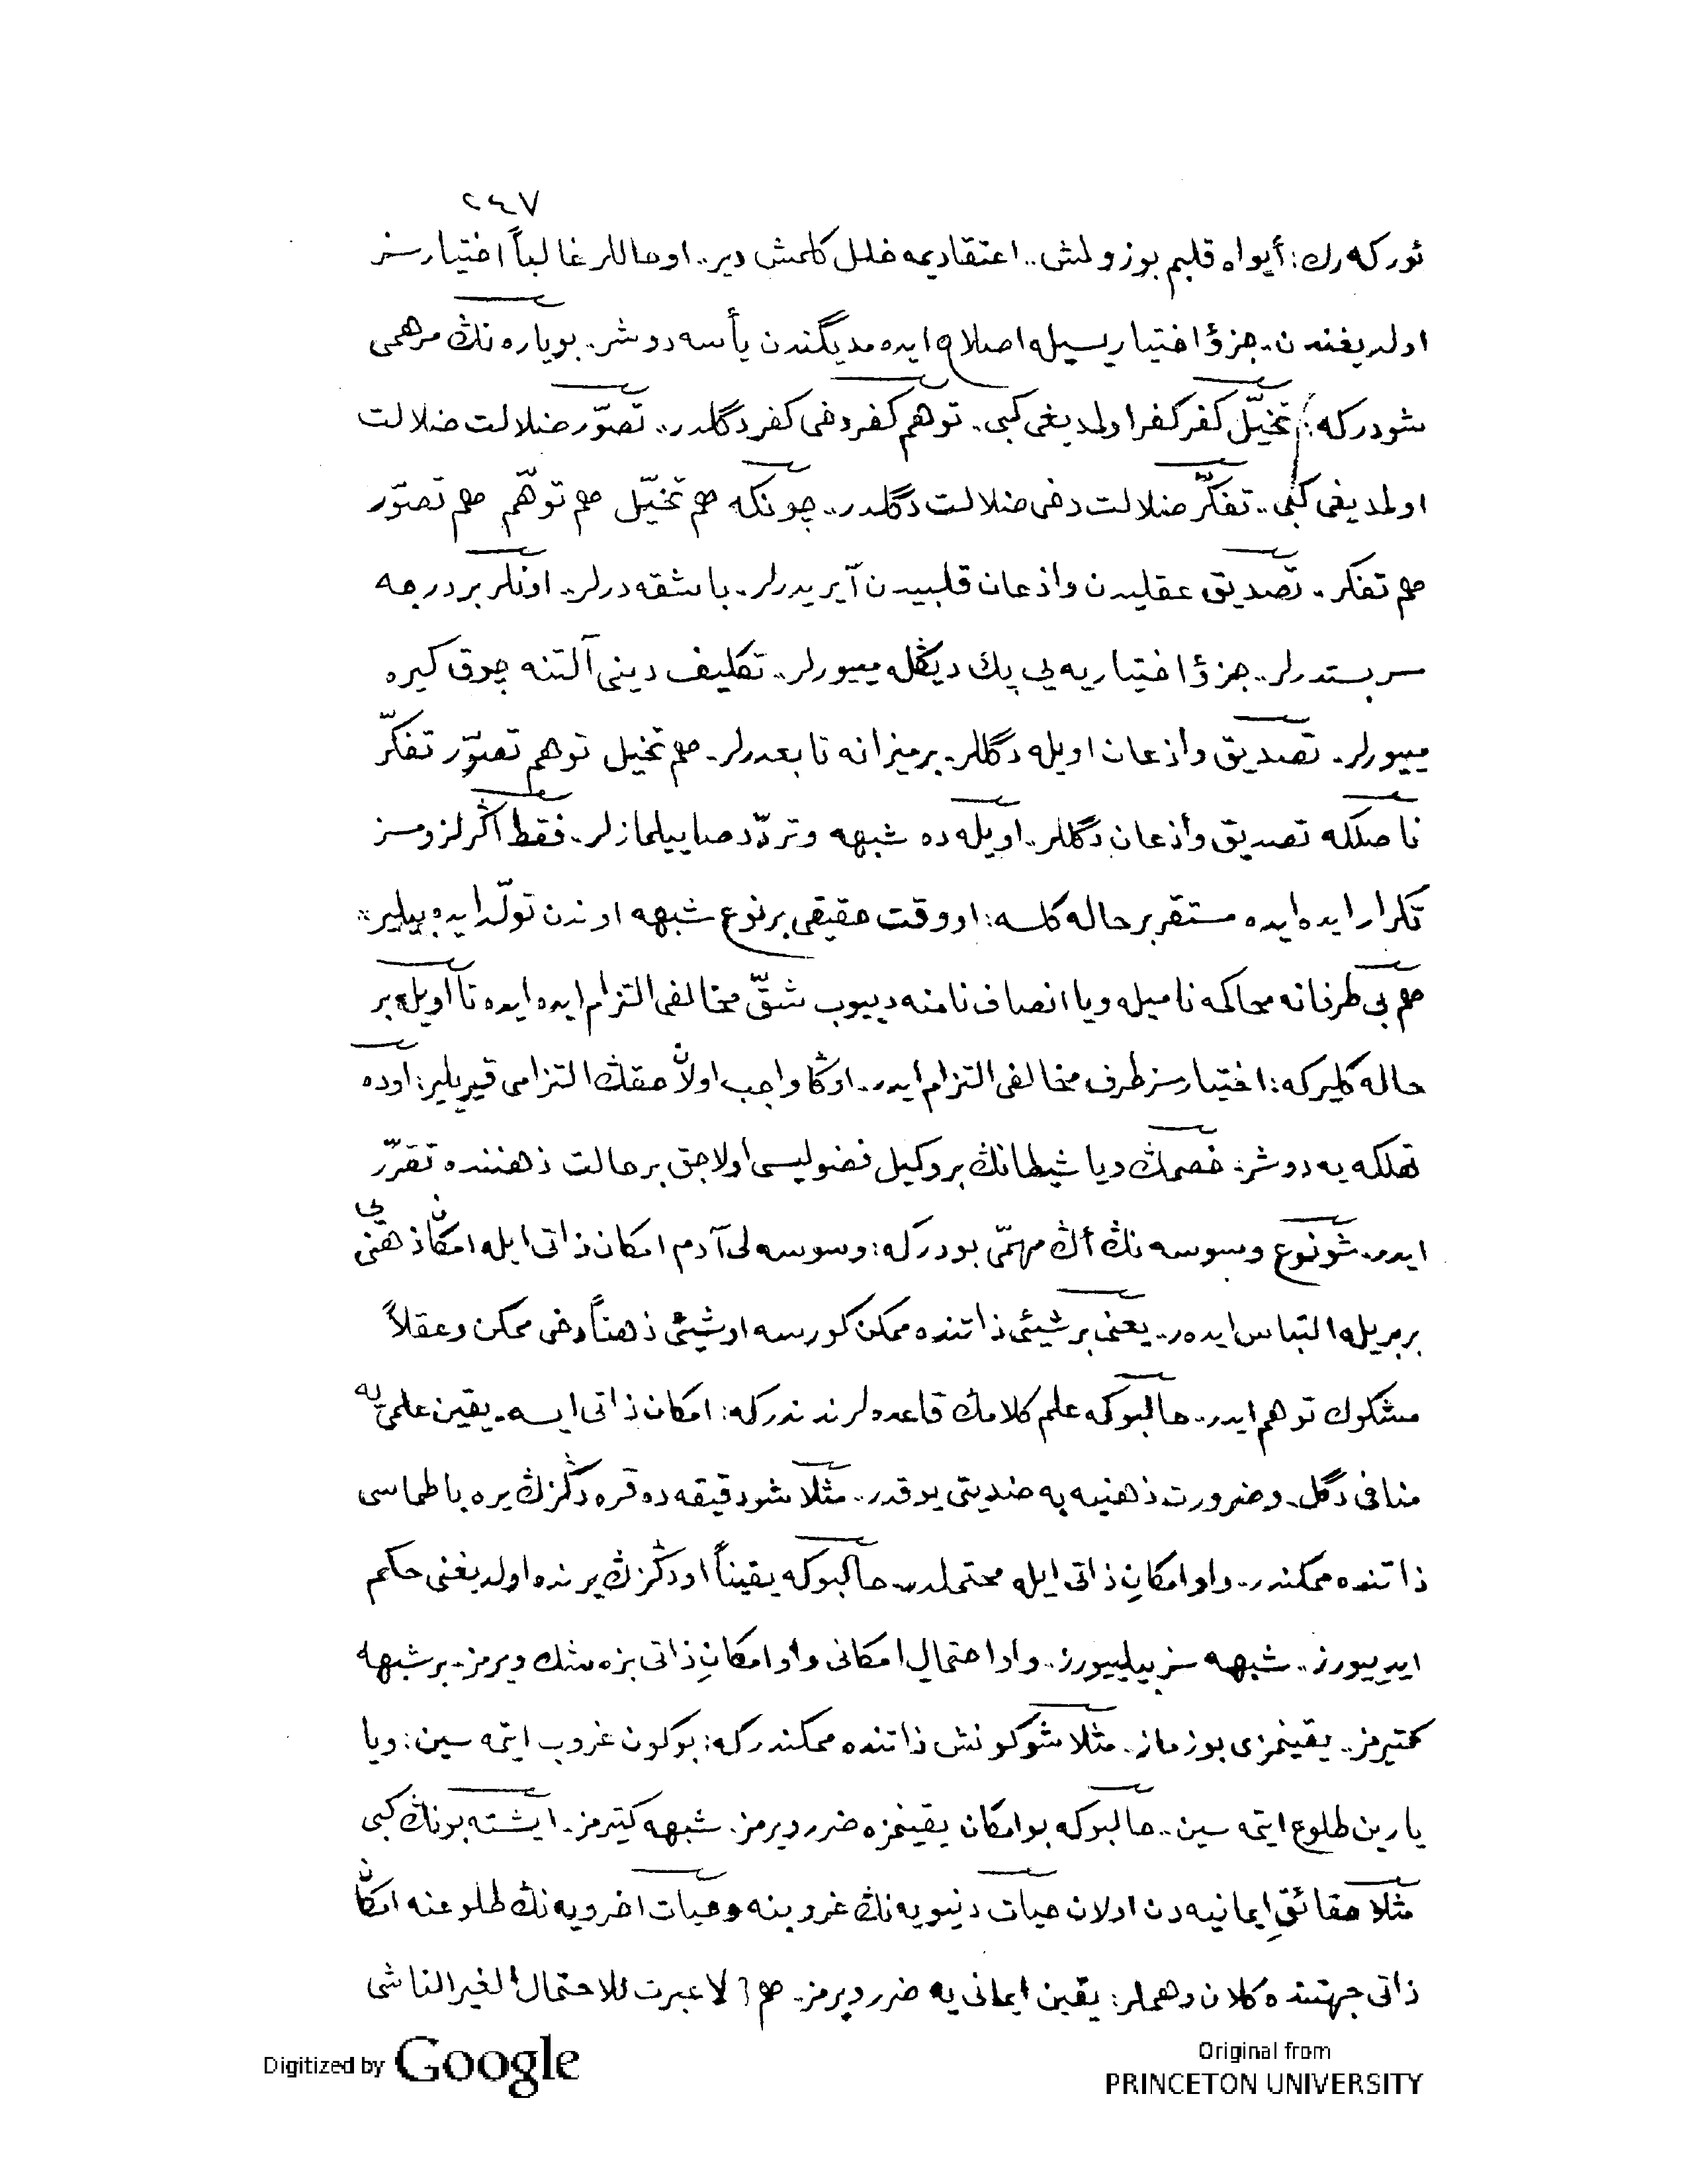 ٢٤٧
ئوركه‌رك: أيواه قلبم بوزولمش.. اعتقاديمه خلل كلمش دير.. اوحاللر غالباً اختيارسز
اولديغندن.. جزؤ اختياريسيله اصلاح ايده‌مديگندن يأسه دوشر. بوياره‌نڭ مرهمى
شودركه: تخيّل كفر كفر اولمديغى كبى.. توهم كفر دخى كفر دگلدر.. تصوّر ضلالت ضلالت
اولمديغى كبى.. تفكّر ضلالت دخى ضلالت دگلدر.. چونكه هم تخيّل هم توهّم هم تصوّر
هم تفكر.. تصديق عقليدن واذعان قلبيدن آيريدرلر. باشقه‌درلر.. اونلر بر درجه
سربستدرلر.. جزؤ اختياريه‌يى پك ديڭله‌مييورلر.. تكليف دينى آلتنه چوق كيره
مييورلر. تصديق وأذعان اويله دگللر. برميزانه تابعدرلر. هم تخيل توهم تصوّر تفكّر
ناصلكه تصديق وأذعان دگللر.. اويله‌ده شبهه وتردّد صاييلمازلر. فقط اگر لزومسز
تكرار ايده ايده مستقر بر حاله كلسه: اووقت حقيقى برنوع شبهه اوندن تولّد ايده‌بيلير..
هم بى‌طرفانه محاكمه ناميله ويا انصاف نامنه دييوب شقّ مخالفى التزام ايده ايده تا اويله بر
حاله كليركه: اختيارسز طرف مخالفى التزام ايدر. اوڭا واجب اولان حقڭ التزامى قيريلير: اوده
تهلكه‌يه دوشر. خصمڭ ويا شيطانڭ بر وكيل فضوليسى اولاجق بر حالت ذهننده تقرّر
ايدر. شو نوع وسوسه‌نڭ أڭ مهمّى بودركه: وسوسه‌لى آدم امكان ذاتى ايله امكان ذهنى‌يى
بربريله التباس ايده‌ر. يعنى بر شيئى ذاتنده ممكن كورسه او شيئى ذهناً دخى ممكن وعقلاً
مشكوك توهم ايدر.. حالبوكه علم كلامڭ قاعده‌لرندندركه: امكان ذاتى ايسه. يقين علمى‌يه
منافى دگل. وضرورت ذهنيه‌يه ضديتى يوقدر.. مثلا شو دقيقه‌ده قره دڭزڭ يره باطماسى
ذاتنده ممكندر.. واو امكانِ ذاتى ايله محتملدر.. حالبوكه يقيناً او دڭزڭ يرنده اولديغنى حكم
ايدييورز.. شبهه‌سز بيلييورز.. واو احتمال امكانى واو امكانِ ذاتى بزه شك ويرمز. بر شبهه
كتيرمز.. يقينمزى بوزماز.. مثلا شو كونش ذاتنده ممكندركه: بوكون غروب ايتمه‌سين: ويا
يارين طلوع ايتمه‌سين.. حالبوكه بو امكان يقينمزه ضرر ويرمز. شبهه كتيرمز. ايشته بونڭ كبى
مثلا حقائقِ ايمانيه‌دن اولان حيات دنيويه‌نڭ غروبنه وحيات اخرويه‌نڭ طلوعنه امكان
ذاتى جهتنده كلان وهملر: يقين ايمانى‌يه ضرر ويرمز. هم لاعبرت للاحتمال الغير الناشى
Digitized by Google
Original from
PRINCETON UNIVERSITY